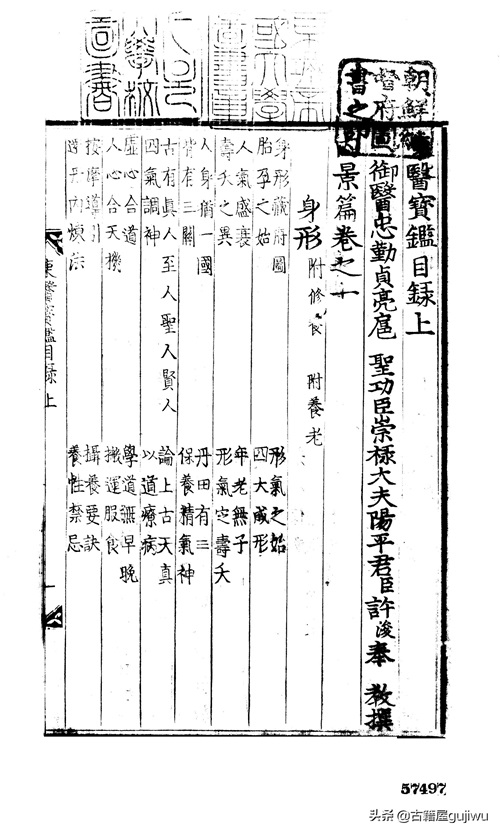 朝鮮總
督府圖
書之印
醫寶鑑目録上
御醫忠勤貞亮扈 聖功臣崇禄大夫陽平君臣許浚奉 敎撰
景篇卷之一
身形 附修養 附養老
身形藏府圖 形氣之始
胎孕之始 四大成形
人氣盛衰 年老無子
壽夭之異 形氣定壽夭
人身猶一國 丹田有三
背有三關 保養精氣神
古有眞人至人聖人賢人 論上古天真
四氣調神 以道療病
虛心合道 學道無早晚
人心合天機 搬運服食
按摩導引 攝養要訣
還丹內煉法 養性禁忌
東醫寳鑑目録上 一
57497
头条 @古籍屋gujiwu